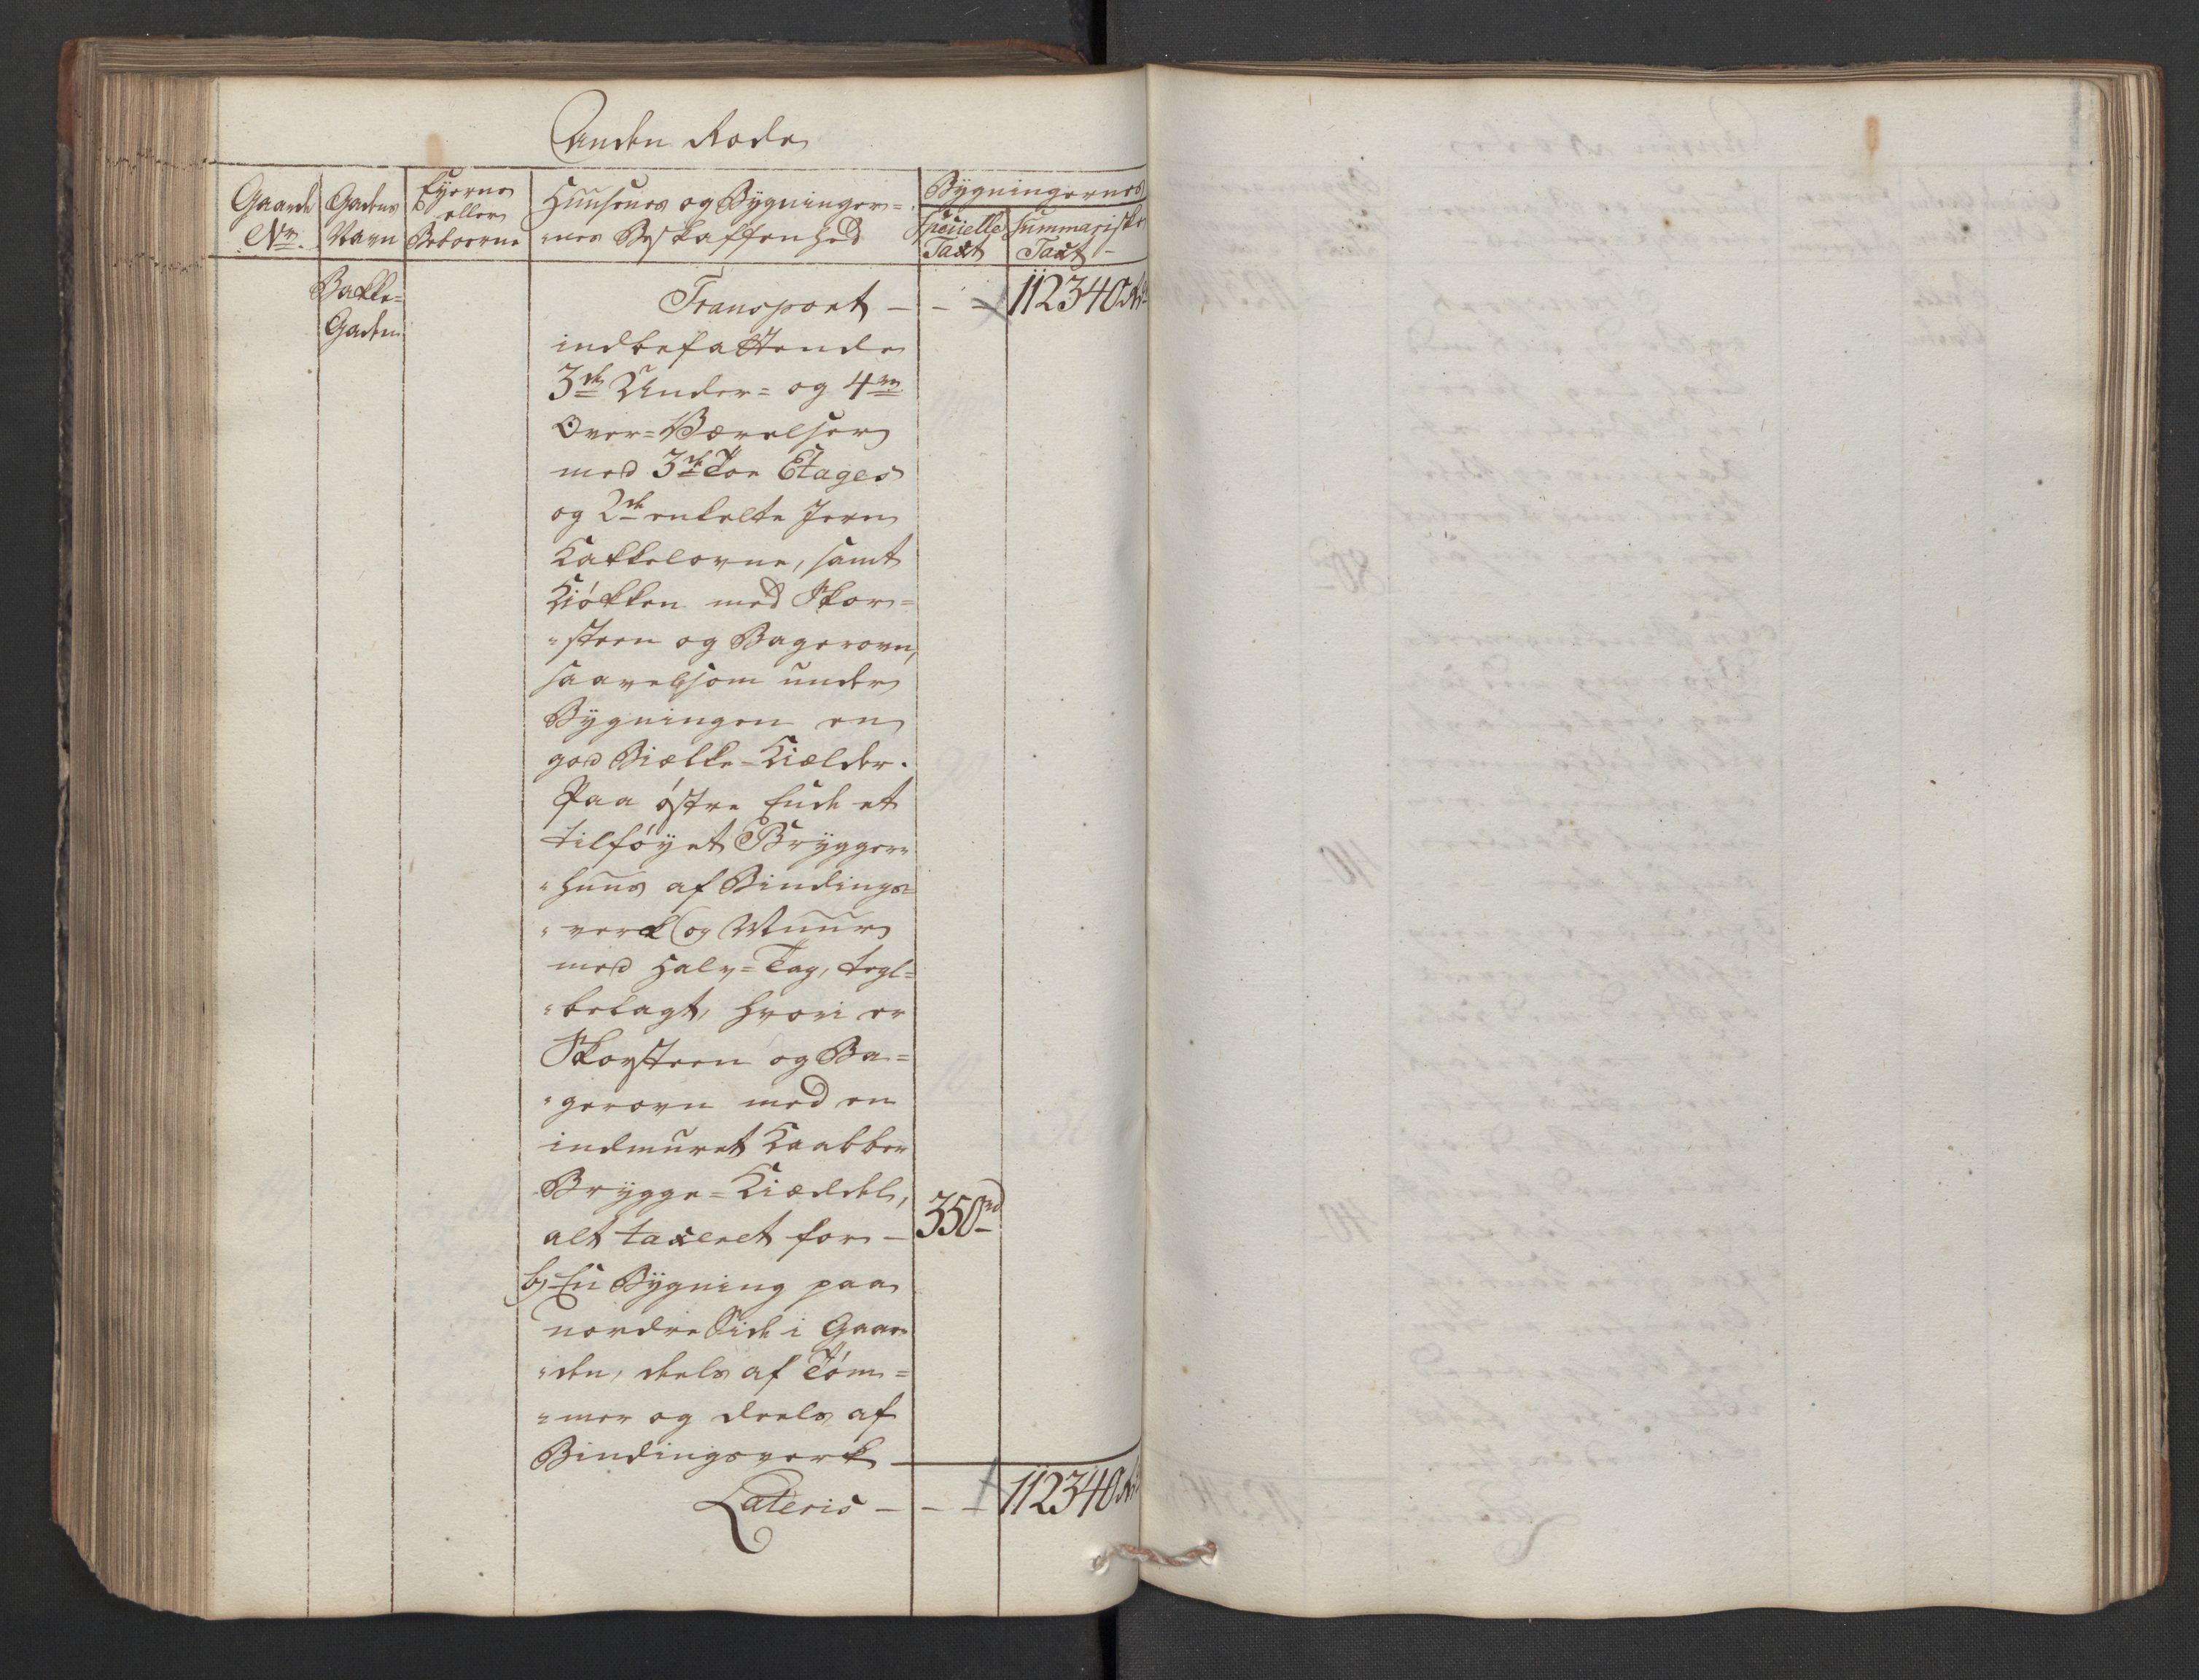 Anden Rode
Gaarde
No.
Gadens
Navn
Eyerne
eller
Beboerne
Huusenes og Bygninger=
nes Beskaffenhed
Bygningernes
Specielle
Taxt
Summariske
Taxt
Bakke=
Gaden
Transport — — = 112340 Rd
indbefattende
3de Under= og 4re
Over=Værelser
med 3de Toe Etages
og 2de enkelte Jern
Kakkelovne, samt
Kiökken med Skor=
steen og Bagerovn,
saavelsom under
Bygningen en
god Bielke=Kielder.
Paa östre Ende et
tilföyet Brygger=
huus af Bindings=
verk og Muur
med Halv=Tag, tegl=
belagt, hvori er
Skorsteen og Ba=
gerovn med en
indmuret Kaabber
Brygge=Kieddel,
alt taxeret for — 350 rd
b) En Bygning paa
nordre Side i Gaar=
den, deels af Töm=
mer og deels af
Bindingsverk —
Lateris — — — 112340 Rd